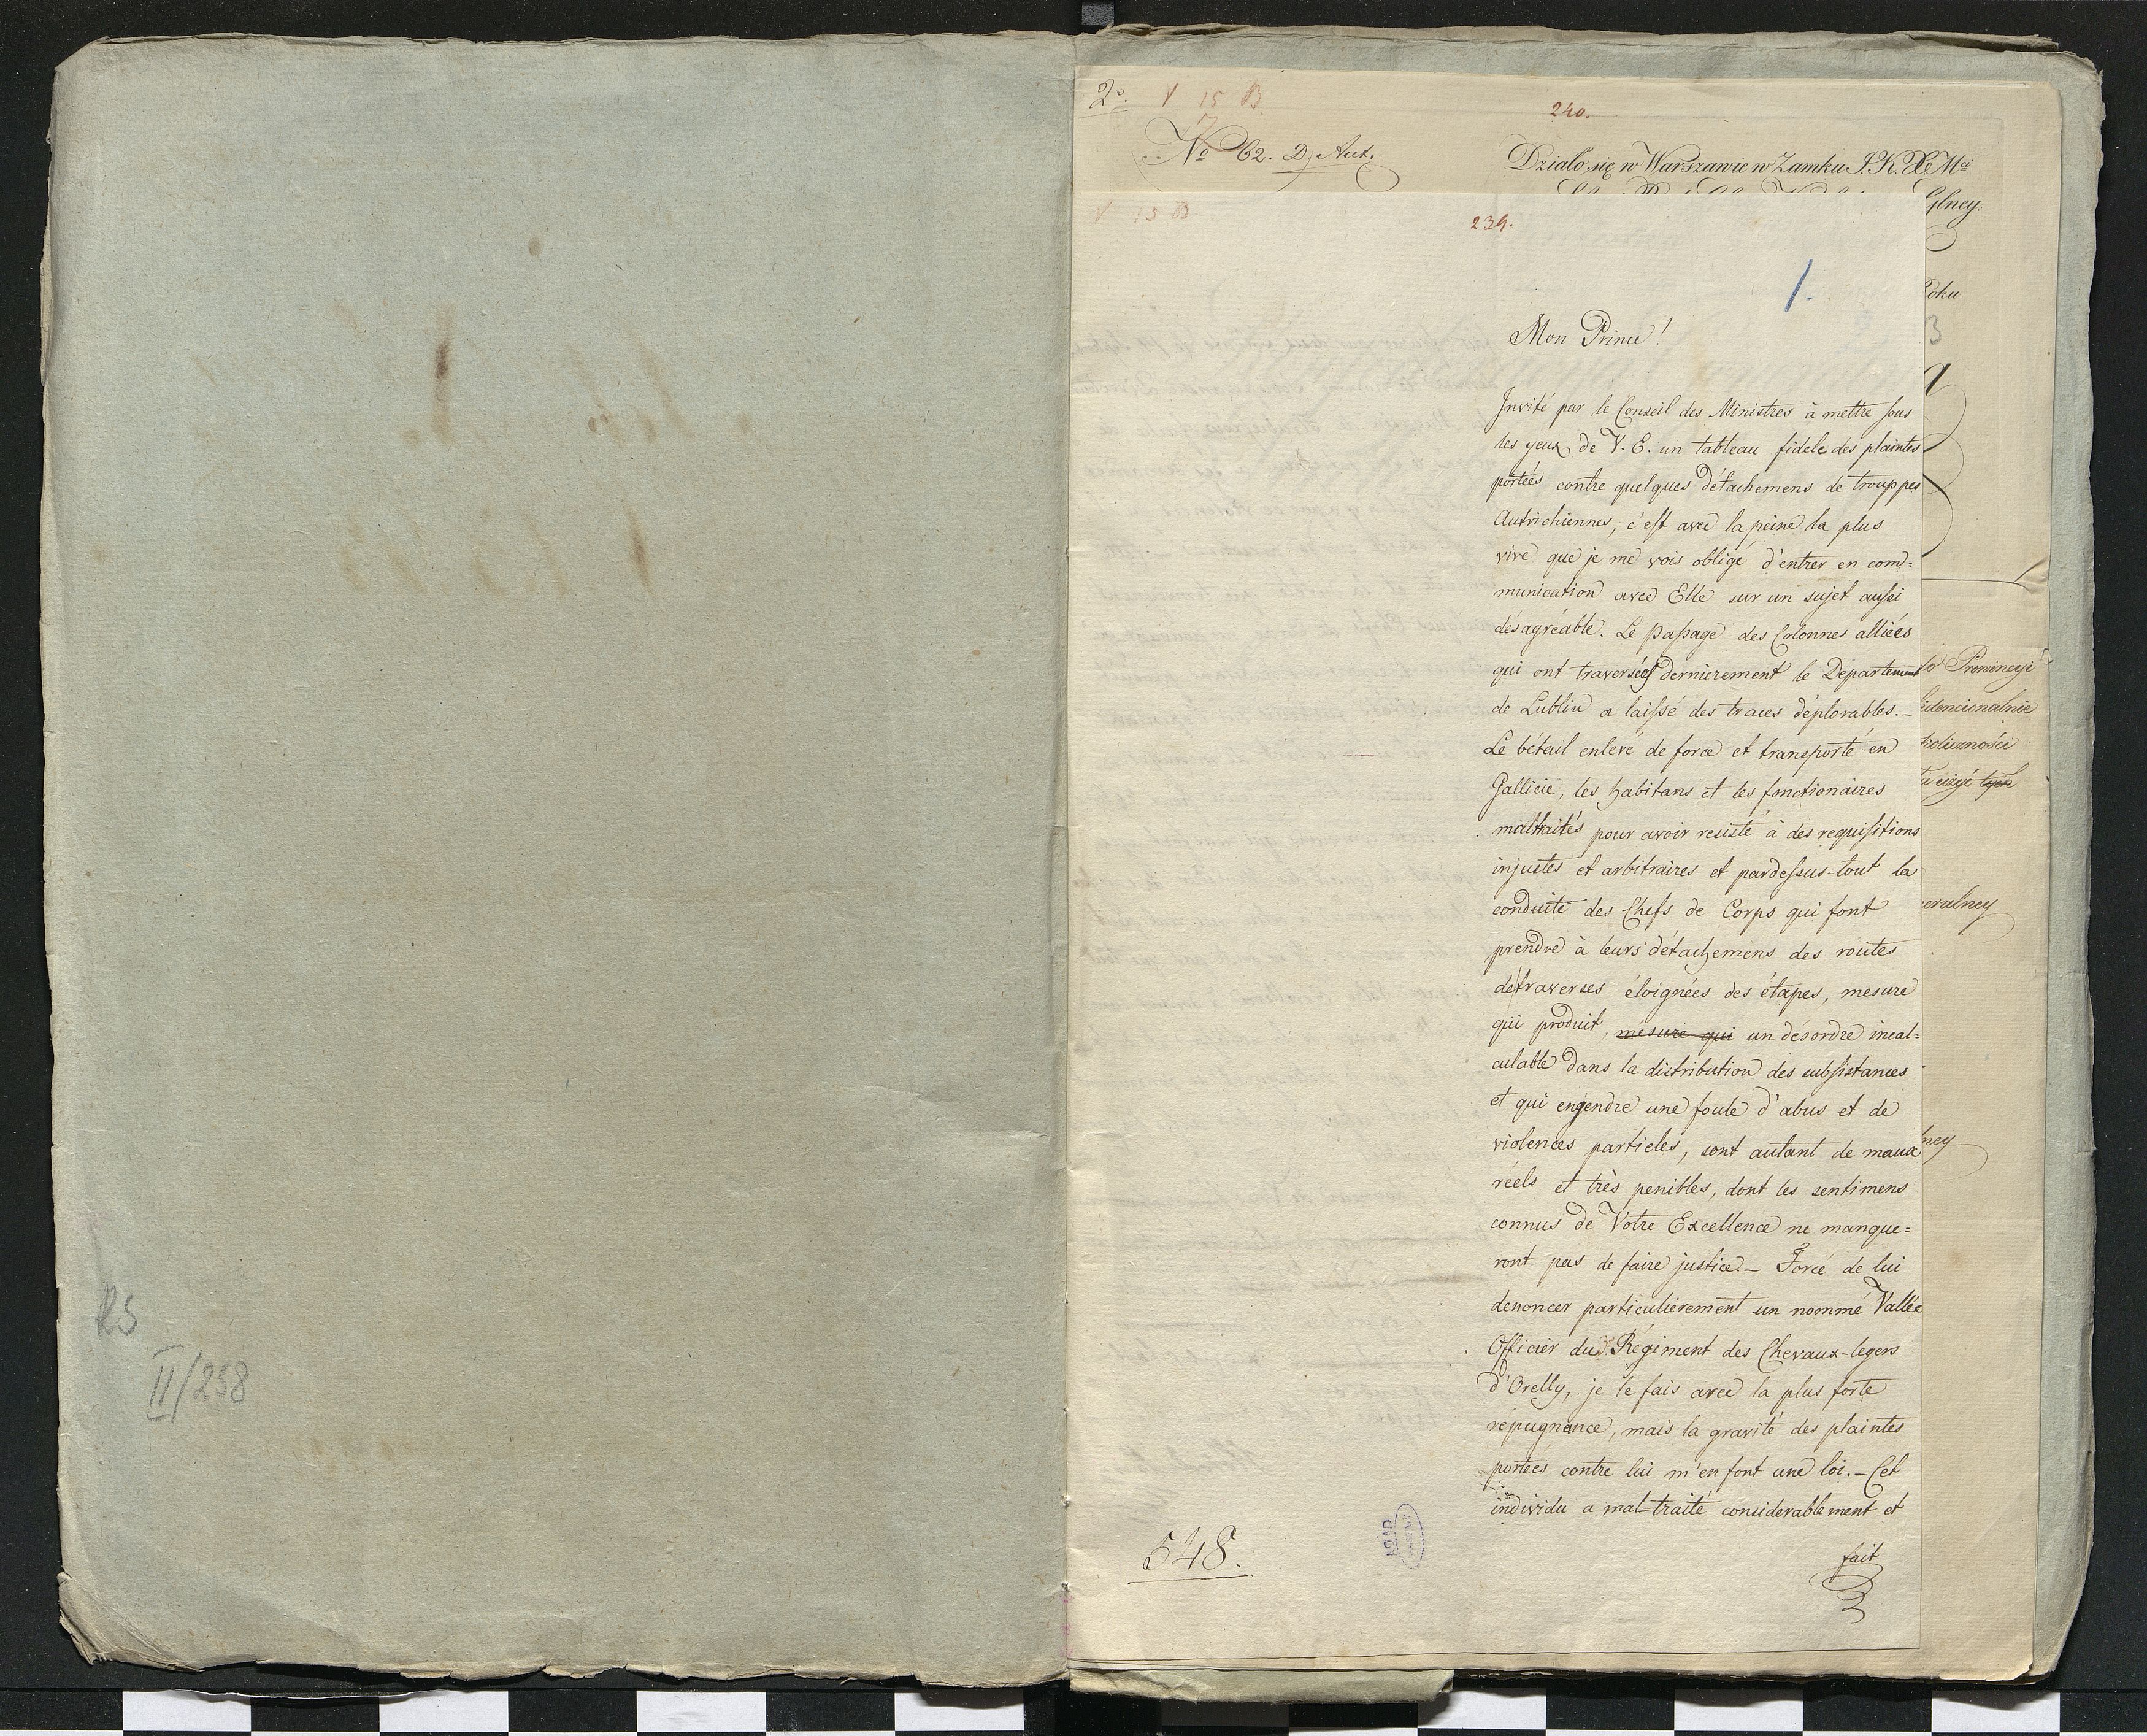 2º.
V 15 B
240.
Nº 62. D. Aut.
Działo się w Warszawie w Zamku J. K. Xcé Mci
Glney.
oku
V 15 B
239.
1.
Mon Prince!
Invité par le Conseil des Ministres à mettre sous
les yeux de V. E. un tableau fidele des plaintes
portées contre quelques détachemens de trouppes
Autrichiennes, c'est avec la peine la plus
vive que je me vois obligé d'entrer en com=
munication avec Elle sur un sujet aussi
désagréable. Le passage des Colonnes alliées
qui ont traversées dernièrement le Departement
de Lublin a laissé des traces déplorables.—
Le bétail enlevé de force et transporté en
Gallicie, les habitans et les fonctionaires
maltraités pour avoir resisté à des requisitions
injustes et arbitraires et pardessus-tout la
conduite des Chefs de Corps qui font
prendre à leurs détachemens des routes
détraverses éloignées des étapes, mesure
qui produit, mésure qui un désordre incal=
culable dans la distribution des subsistances
et qui engendre une foule d'abus et de
violences particles, sont autant de maux
réels et très penibles, dont les sentimens
connus de Votre Excellence ne manque=
ront pas de faire justice.— Forcé de lui
denoncer particulièrement un nommé Vallée
Officier du Régiment des Chevaux-legers
d'Orelly, je le fais avec la plus forte
répugnance, mais la gravité des plaintes
portées contre lui m'en font une loi.— Cet
individu a mal-traité considerablement et
fait
to Prowincyi
idencionalnie
koliczności
użyć tych
eralney
ney
548.
AGAD
RS
II/258